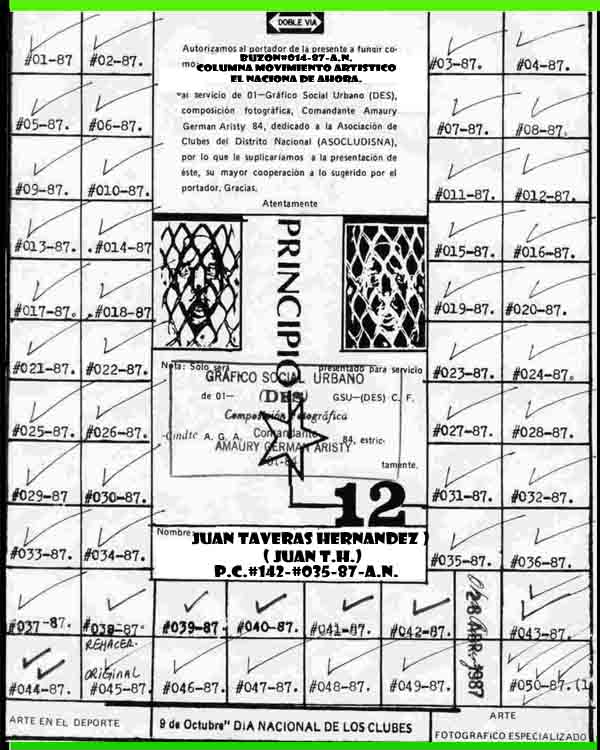 DOBLE VIA
Autorizamos al portador de la presente a fungir co-
mo
BUZON#014-87-A.N.
COLUMNA MOVIMIENTO ARTISTICO
EL NACIONA DE AHORA.
al servicio de 01—Gráfico Social Urbano (DES),
composición fotográfica, Comandante Amaury
German Aristy 84, dedicado a la Asociación de
Clubes del Distrito Nacional (ASOCLUDISNA),
por lo que le suplicaríamos a la presentación de
éste, su mayor cooperación a lo sugerido por el
portador. Gracias.
Atentamente
PRINCIPIO
Nota: Solo será presentado para servicio
de 01— GSU—(DES) C. F.
Cmdte A. G. A. 84, estric-
tamente.
GRÁFICO SOCIAL URBANO
(DES)
Composición Fotográfica
Comandante
AMAURY GERMAN ARISTY
01-84
12
Nombre:
JUAN TAVERAS HERNANDEZ )
( JUAN T.H.)
P.C.#142-#035-87-A.N.
#01-87 #02-87. #03-87. #04-87.
#05-87. #06-87. #07-87. #08-87.
#09-87. #010-87. #011-87. #012-87.
#013-87. .#014-87 #015-87. #016-87.
#017-87. #018-87 #019-87. #020-87.
#021-87. #022-87. #023-87. #024-87.
#025-87. #026-87. #027-87. #028-87.
#029-87 #030-87. #031-87. #032-87.
#033-87. #034-87. #035-87. #036-87.
#037-87. #038-87. #039-87. #040-87. #041-87. #042-87. #043-87.
REHACER.
ORIGINAL
#044-87. #045-87. #046-87. #047-87. #048-87. #049-87. #050-87.(1
28 ABR. 1987
ARTE EN EL DEPORTE
9 de Octubre" DIA NACIONAL DE LOS CLUBES
ARTE
FOTOGRAFICO ESPECIALIZADO